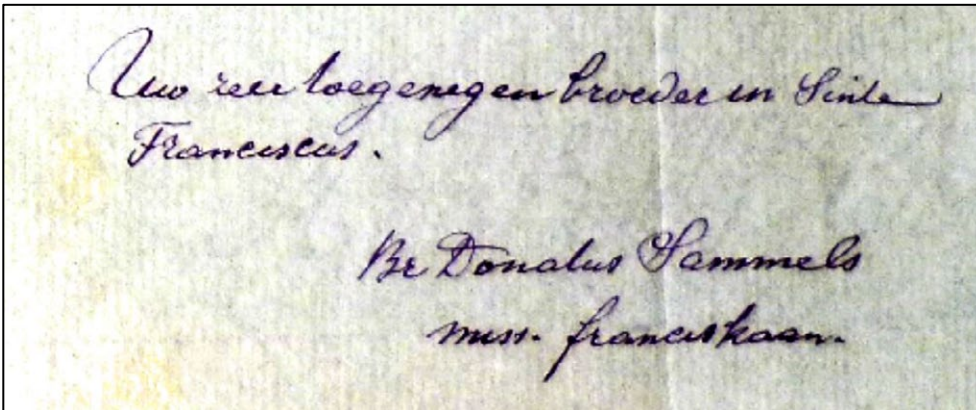 Uw zeer toegenegen broeder in Sinte
Franciscus.
Br Donatus Sammels
miss. franciskaan.